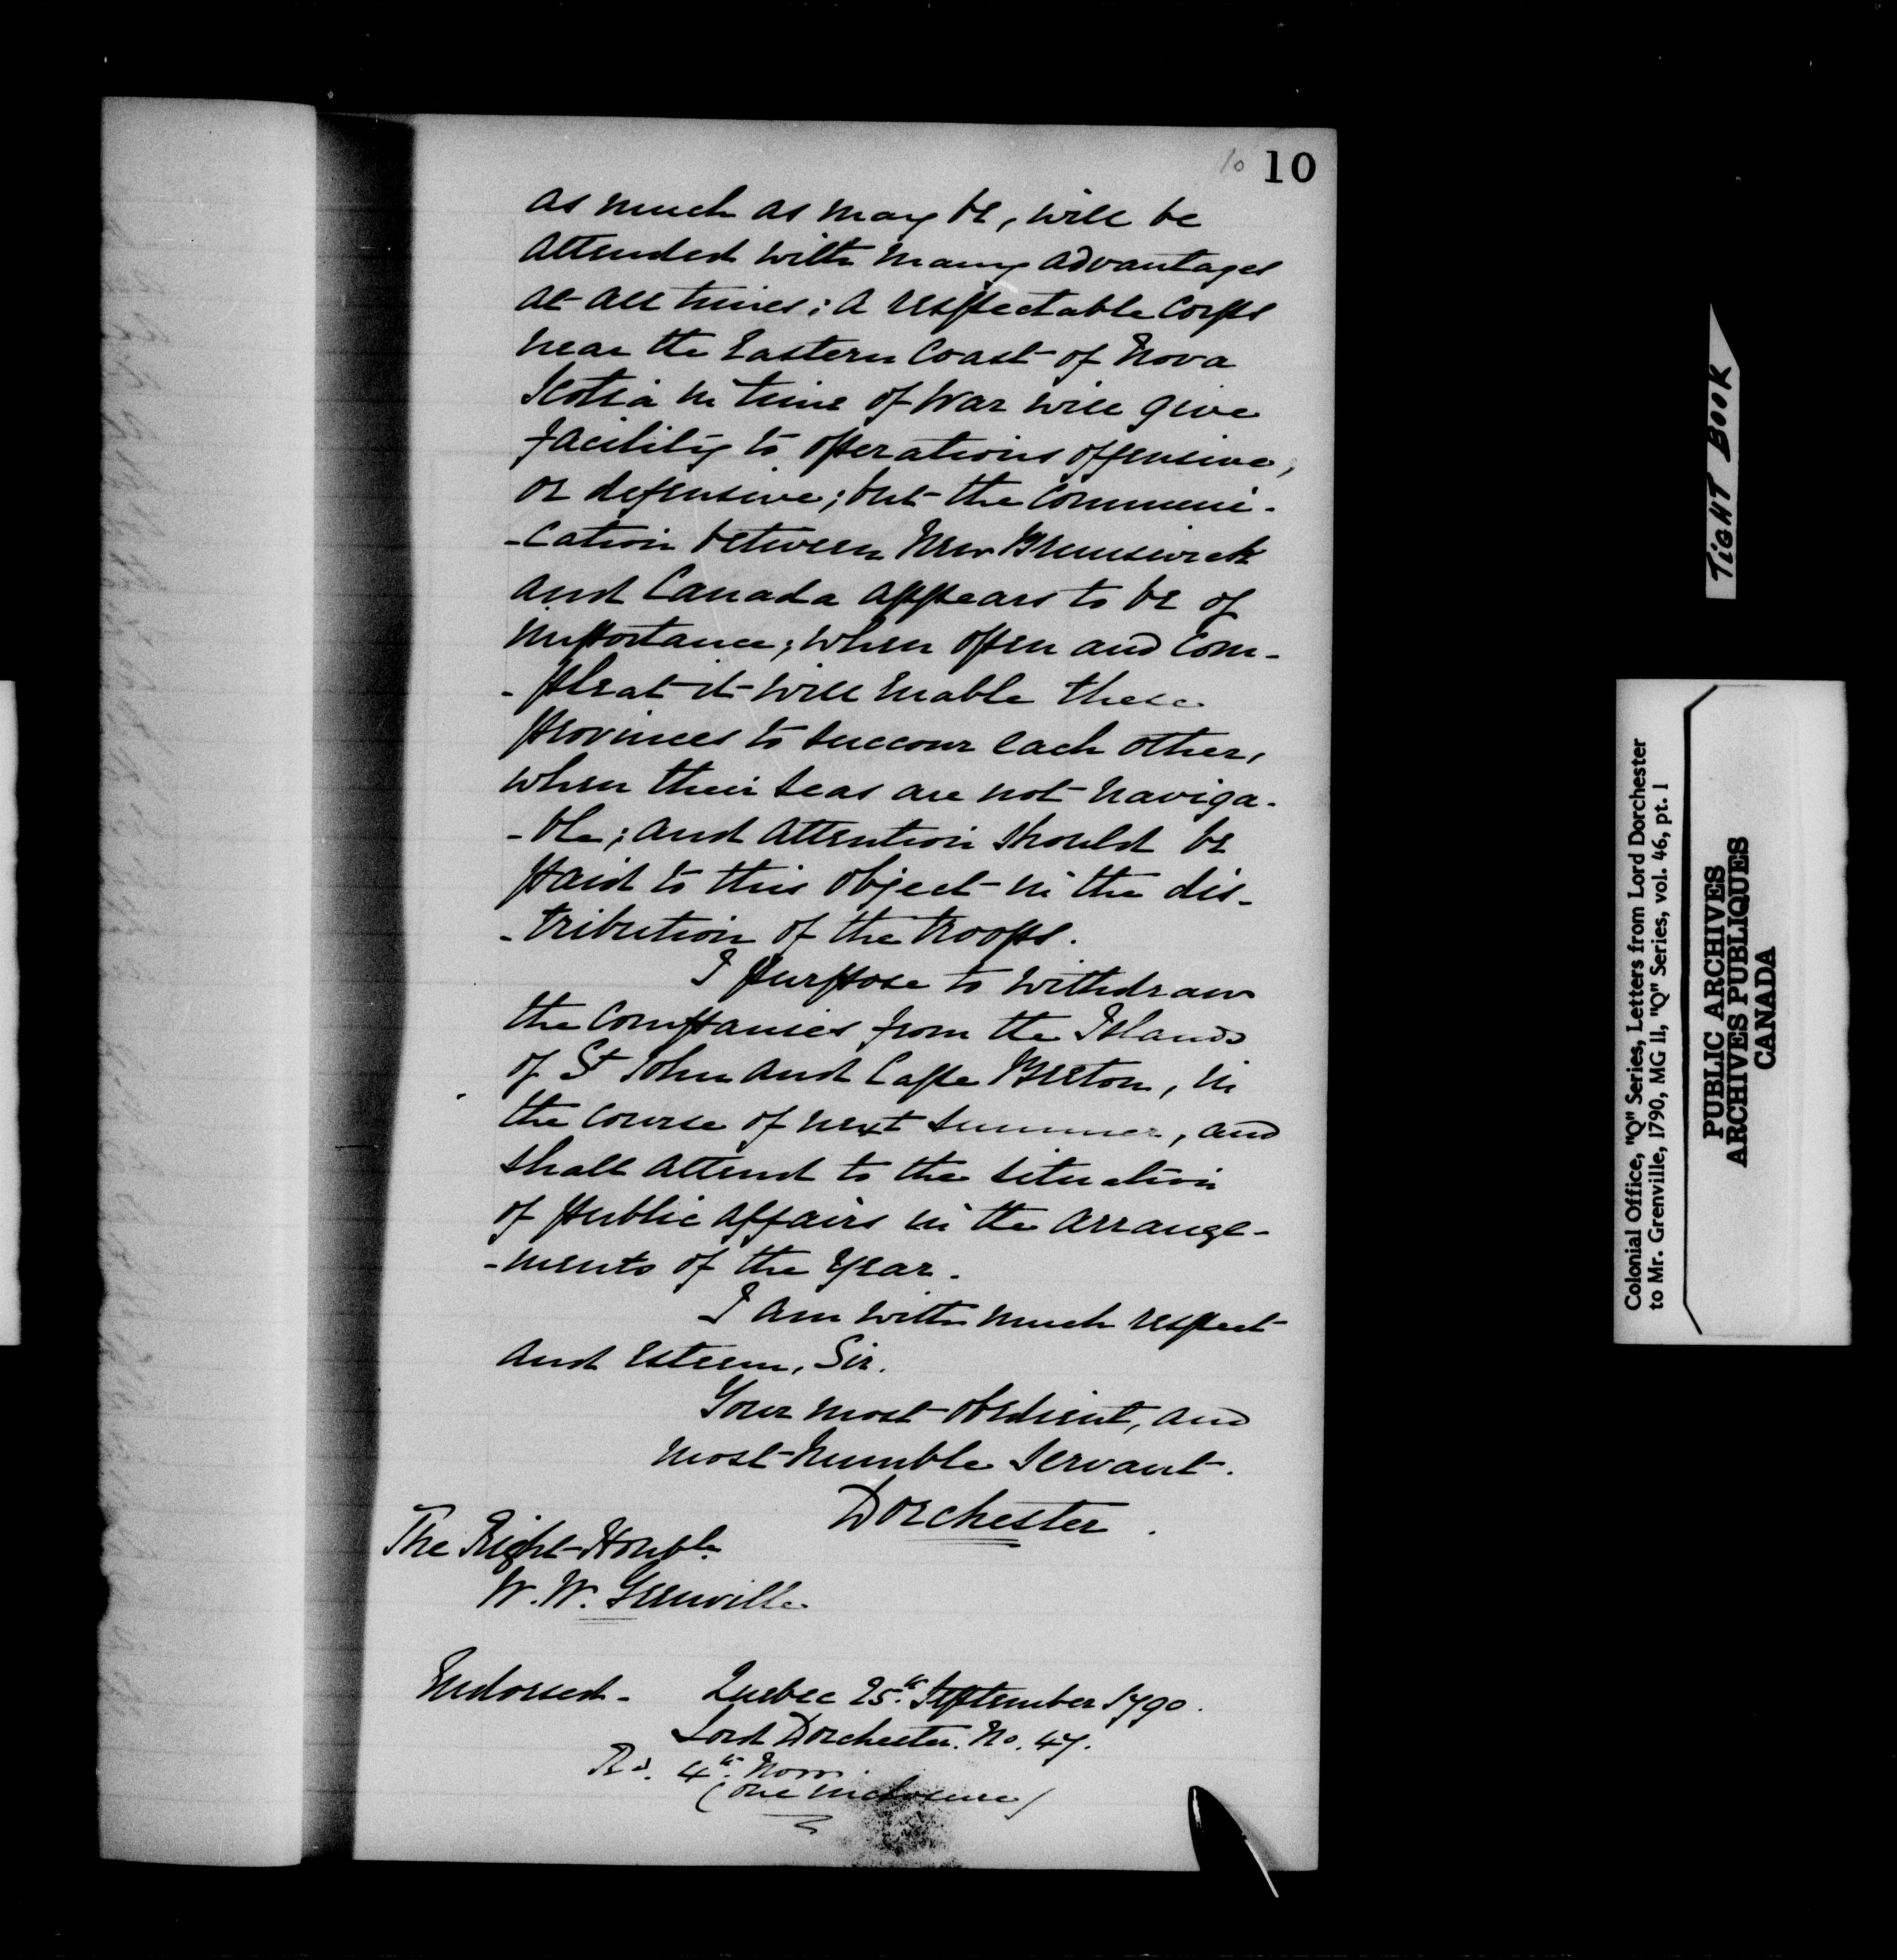 10 10
as much as may be, will be
attended with many advantages
at all times; a respectable Corps
near the Eastern Coast of Nova
Scotia in time of War will give
facility to operations offensive,
or defensive; but the Communi-
-cation between New Brunswick
and Canada appears to be of
importance; when open and com-
-pleat it will enable these
provinces to succour each other,
when their seas are not naviga-
-ble; and attention should be
paid to this object in the dis-
-tribution of the troops.
I purpose to withdraw
the Companies from the Islands
of St John and Cape Breton, in
the course of next summer, and
shall attend to the situation
of public affairs in the arrange-
-ments of the year.
I am with much respect
and esteem, Sir.
Your most obedient, and
most humble servant.
Dorchester.
The Right Honble.
W. W. Grenville
Endorsed - Quebec 25th September 1790.
Lord Dorchester. No. 47.
Rd. 4th Novr.
(One inclosure)
TIGHT BOOK
Colonial Office, "Q" Series, Letters from Lord Dorchester
to Mr. Grenville, 1790, MG 11, "Q" Series, vol. 46, pt. 1
PUBLIC ARCHIVES
ARCHIVES PUBLIQUES
CANADA